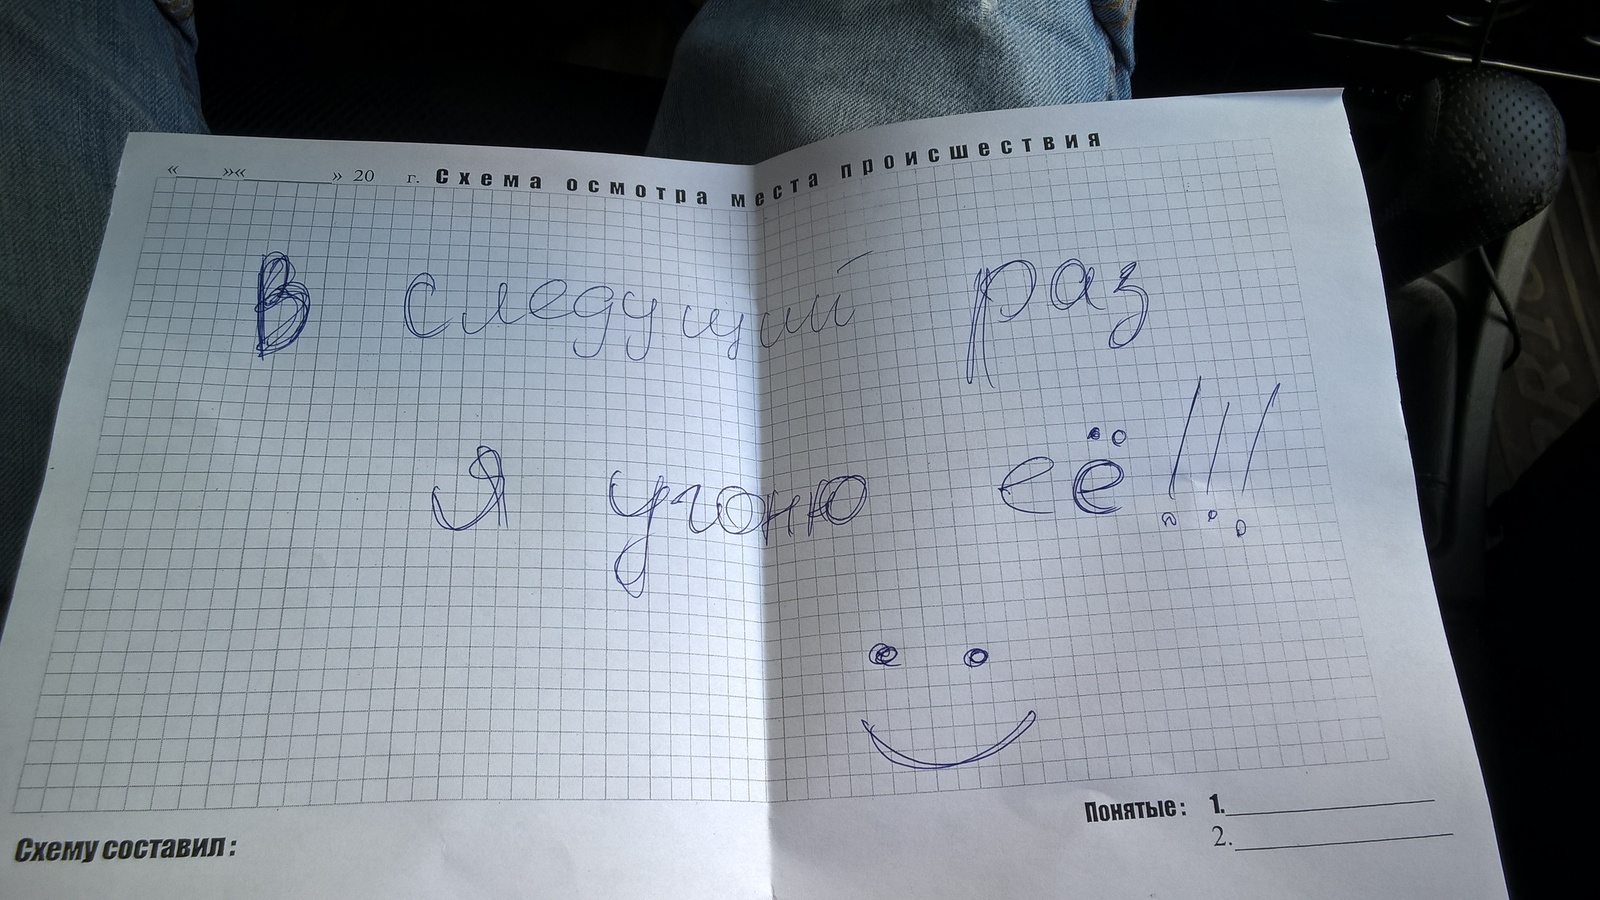 «____»«__________» 20 г. Схема осмотра места происшествия
В следущий раз
я угоню её!!!
Схему составил:
Понятые: 1.
2.